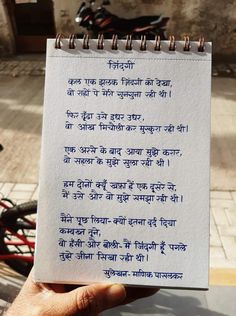 ज़िंदगी
कल एक झलक ज़िंदगी को देखा,
वो राहों पे मेरी गुनगुना रही थी।
फिर ढूँढा उसे इधर उधर,
वो आँख मिचौली कर मुस्कुरा रही थी।
एक अरसे के बाद आया मुझे क़रार,
वो सहला के मुझे सुला रही थी।
हम दोनों क्यूँ ख़फ़ा हैं एक दूसरे से,
मैं उसे और वो मुझे समझा रही थी।
मैंने पूछ लिया- क्यों इतना दर्द दिया
कमबख़्त तूने,
वो हँसी और बोली- मैं ज़िंदगी हूँ पगले
तुझे जीना सिखा रही थी।
सुलेखन- माणिक पासलकर